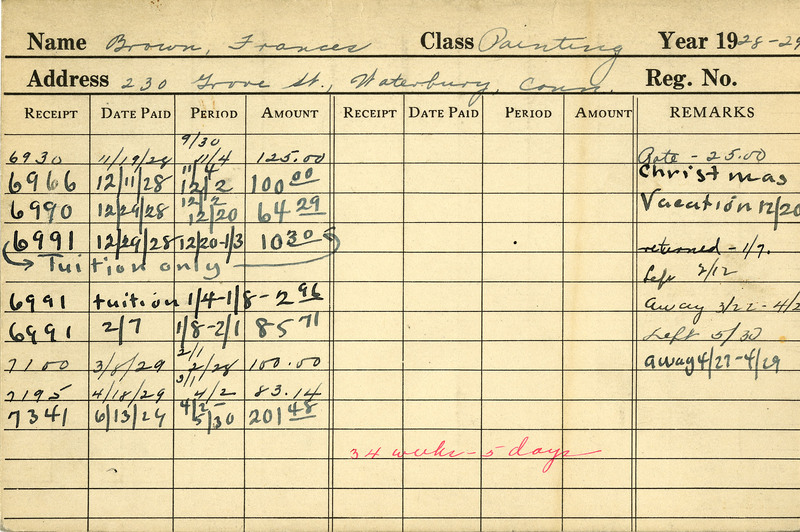 Name Brown, Frances Class Painting Year 1928-29
Address 230 Grove St., Waterbury, Conn. Reg. No.
RECEIPT DATE PAID PERIOD AMOUNT RECEIPT DATE PAID PERIOD AMOUNT REMARKS
9/30
6930 11/19/28 11/4 125.00 Rate - 25.00
11/4
6966 12/11/28 12/2 100 00 Christmas
12/2
6990 12/29/28 12/20 64 29 Vacation 12/20
6991 12/29/28 12/20-1/3 10 30 returned - 1/7.
Tuition only Left 2/12
6991 tuition 1/4-1/8 - 2 96 away 3/22 - 4/2
6991 2/7 1/8-2/1 85 71 Left 5/30
2/1
7100 3/8/29 2/28 100.00 away 4/27-4/29
3/1
7195 4/18/29 4/2 83.14
4/2-
7341 6/13/29 5/30 201 48
34 weeks - 5 days